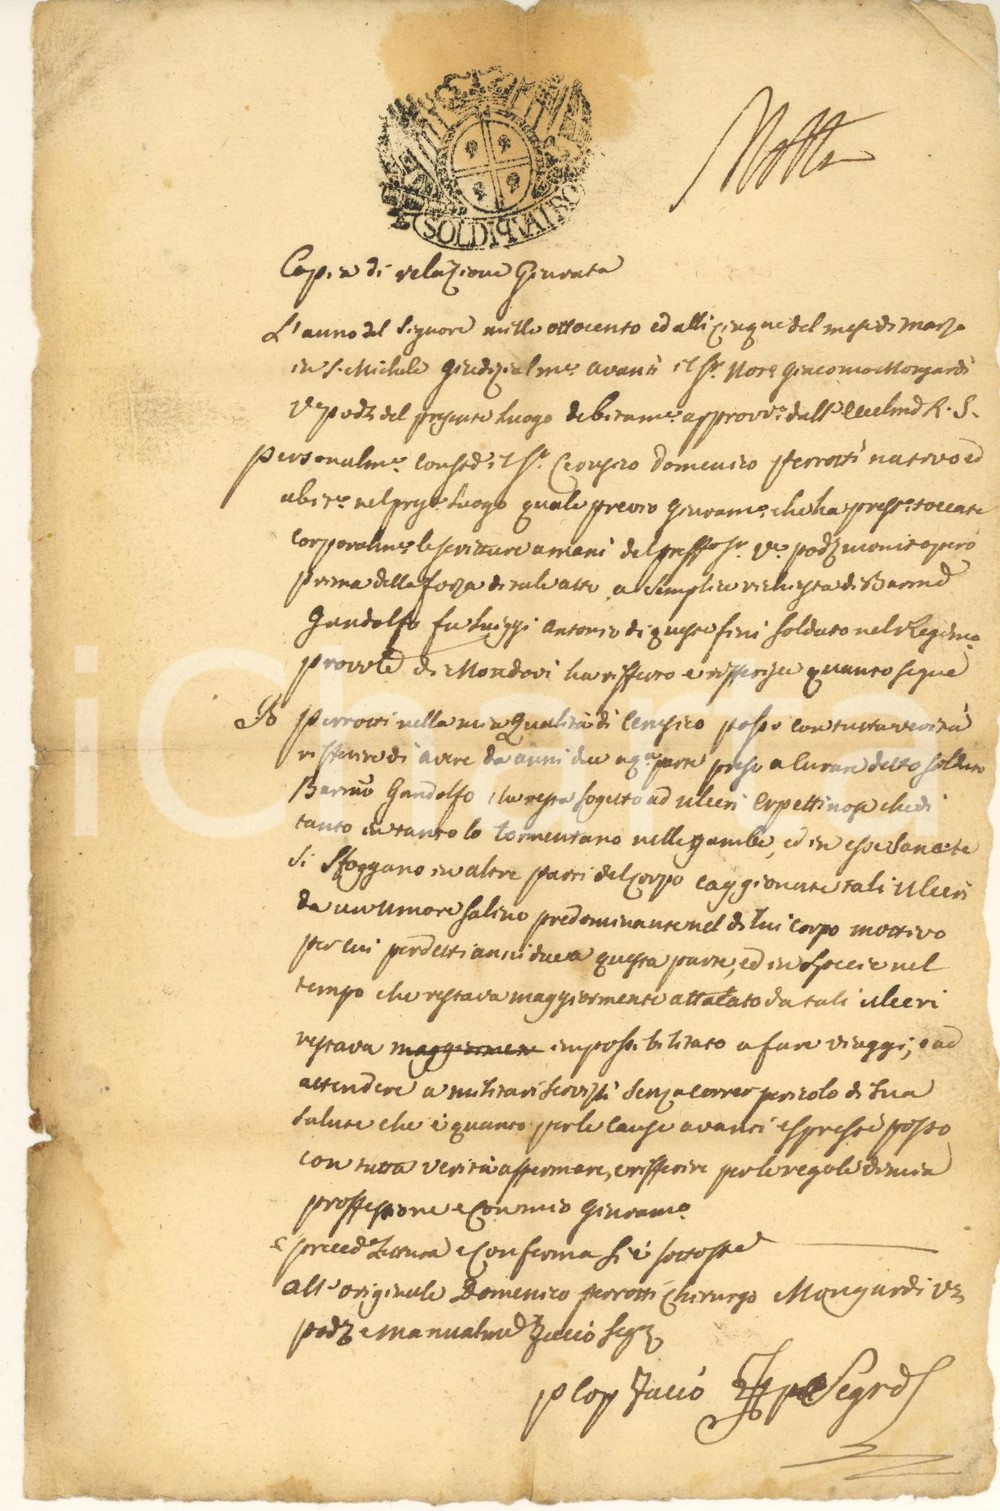 SOLDI QUATRO
Motta
Copia di relazione Giurata
L'anno del Signore mille ottocento ed alli cinque del mese di marzo
in S. Michele Giudizialme. avanti il Sr. Nore. Giacomo Mongardi
Ve. podà del presente luogo debitame. approvo. dall' Eccellmo R. S.
personalme. Constò il Sr. Cerusico Domenico Perrotti nativo ed
abite. nel preste. luogo quale previo Giurame. che ha presto. toccate
corporalme. le scritture a mani del preffo. Sr. Ve. podà monito però
prima della forza di tale atto a semplice richiesta di Barmeo
Gandolfo fu Luiggi Antonio di queste fini soldato nel Regimo.
provle di Mondovì ha rifferto e rifferisce quanto segue
Io Perrotti nella mia Qualità di Cerusico posso con tutta verità
di avere da anni due a qa. parte preso a curare detto soldato
Barmeo Gandolfo che resta sogetto ad ulceri Erpettinose che di
tanto in tanto lo tormentano nelle gambe, ed in esse sanate
si sfoggano in altre parti del Corpo caggionate tali ulceri
da un umore salino predominante nel di lui corpo mottivo
per cui per detti anni due a questa parte, ed in specie nel
tempo che restava maggiormente attacato da tali ulceri
restava maggiormente impossibilitato a fare viaggi, o ad
attendere a militari servizj senza correr pericolo di sua
salute che è quanto per le cause avanti espresse posso
con tutta verità affermare, e rifferire per le regole di mia
proffessione e con mio Giurame.
E preceda Lettura e Conferma si è sottosto
All' originale Domenico Perrotti Chirurgo Mongardi Ve.
podà e manualme Zucció Segro
p Copa Zucció Segro